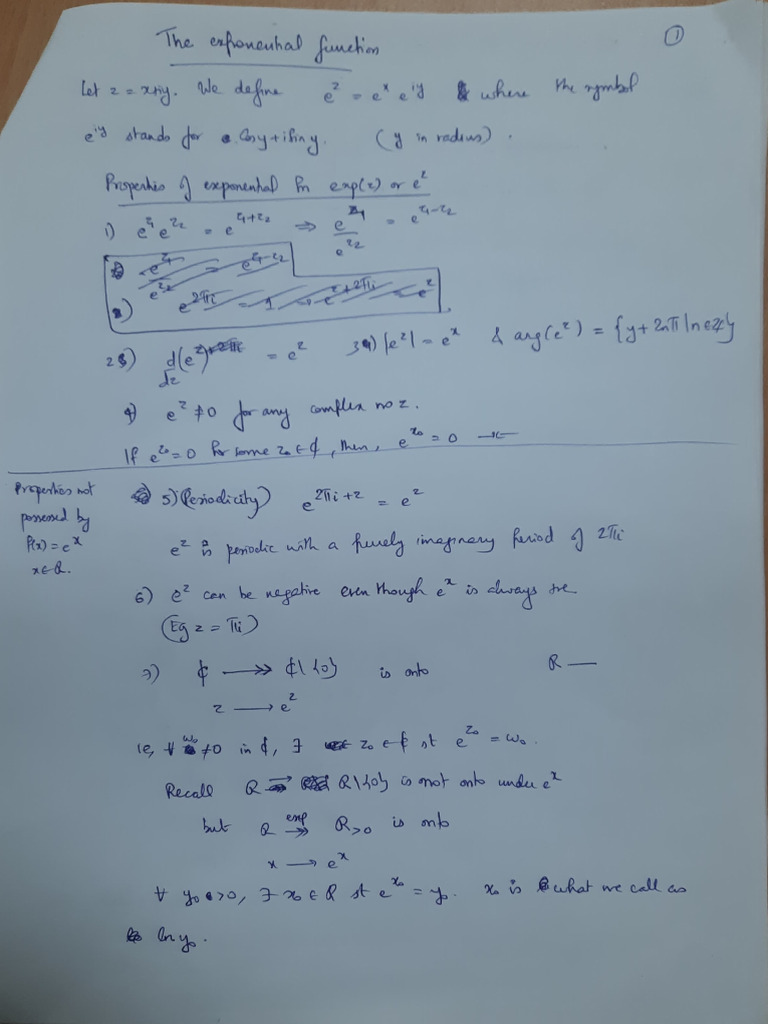 The exponential function
①
Let z = x+iy. We define e^z = e^x e^iy where the symbol
e^iy stands for Cosy + iSiny. (y in radius).
Properties of exponential fn exp(z) or e^z
1) e^z1 e^z2 = e^z1+z2 ⇒ e^z1/e^z2 = e^z1-z2
e^z1/e^z2 = e^z1-z2
2) e^2πi = 1 ⇒ e^z+2πi = e^z
2) d(e^z)/dz = e^z 3) |e^z| = e^x & arg(e^z) = {y + 2nπ | n∈Z}
4) e^z ≠ 0 for any complex no z.
If e^z0 = 0 for some z0 ∈ ℂ, then, e^x0 = 0 →←
Properties not
possessed by
f(x) = e^x
x ∈ R.
5) (Periodicity) e^2πi+z = e^z
e^z is periodic with a purely imaginary period of 2πi
6) e^z can be negative even though e^x is always +ve
(Eg z = πi)
7) ℂ ↠ ℂ\{0} is onto R —
z → e^z
ie, ∀ w0 ≠ 0 in ℂ, ∃ z0 ∈ ℂ st e^z0 = w0.
Recall R → R\{0} is not onto under e^x
but R exp ↠ R>0 is onto
x → e^x
∀ y0 > 0, ∃ x0 ∈ R st e^x0 = y0. x0 is what we call as
ln y0.